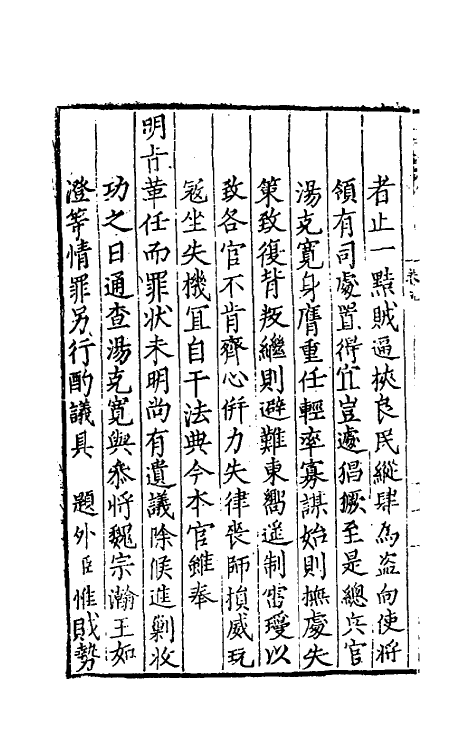 者止一黠賊逼挾良民縱肆為盜向使將
領有司處置得宜豈遽猖獗至是總兵官
湯克寬身膺重任輕率寡謀始則撫處失
策致復背叛繼則避難東嚮遥制雷瓊以
致各官不肯齊心併力失律喪師損威玩
寇坐失機宜自干法典今本官雖奉
明旨革任而罪狀未明尚有遺議除候進剿收
功之日通查湯克寬與叅將魏宗瀚王如
澄等情罪另行酌議具　題外臣惟賊勢
卷九